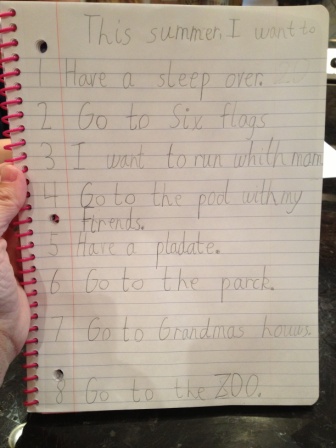 This summer, I want to
1 Have a sleep over.
2 Go to Six flags
3 I want to run whith mom
4 Go to the pool with my
firends.
5 Have a pladate.
6 Go to the parck.
7 Go to Grandmas
8 Go to the ZOO.